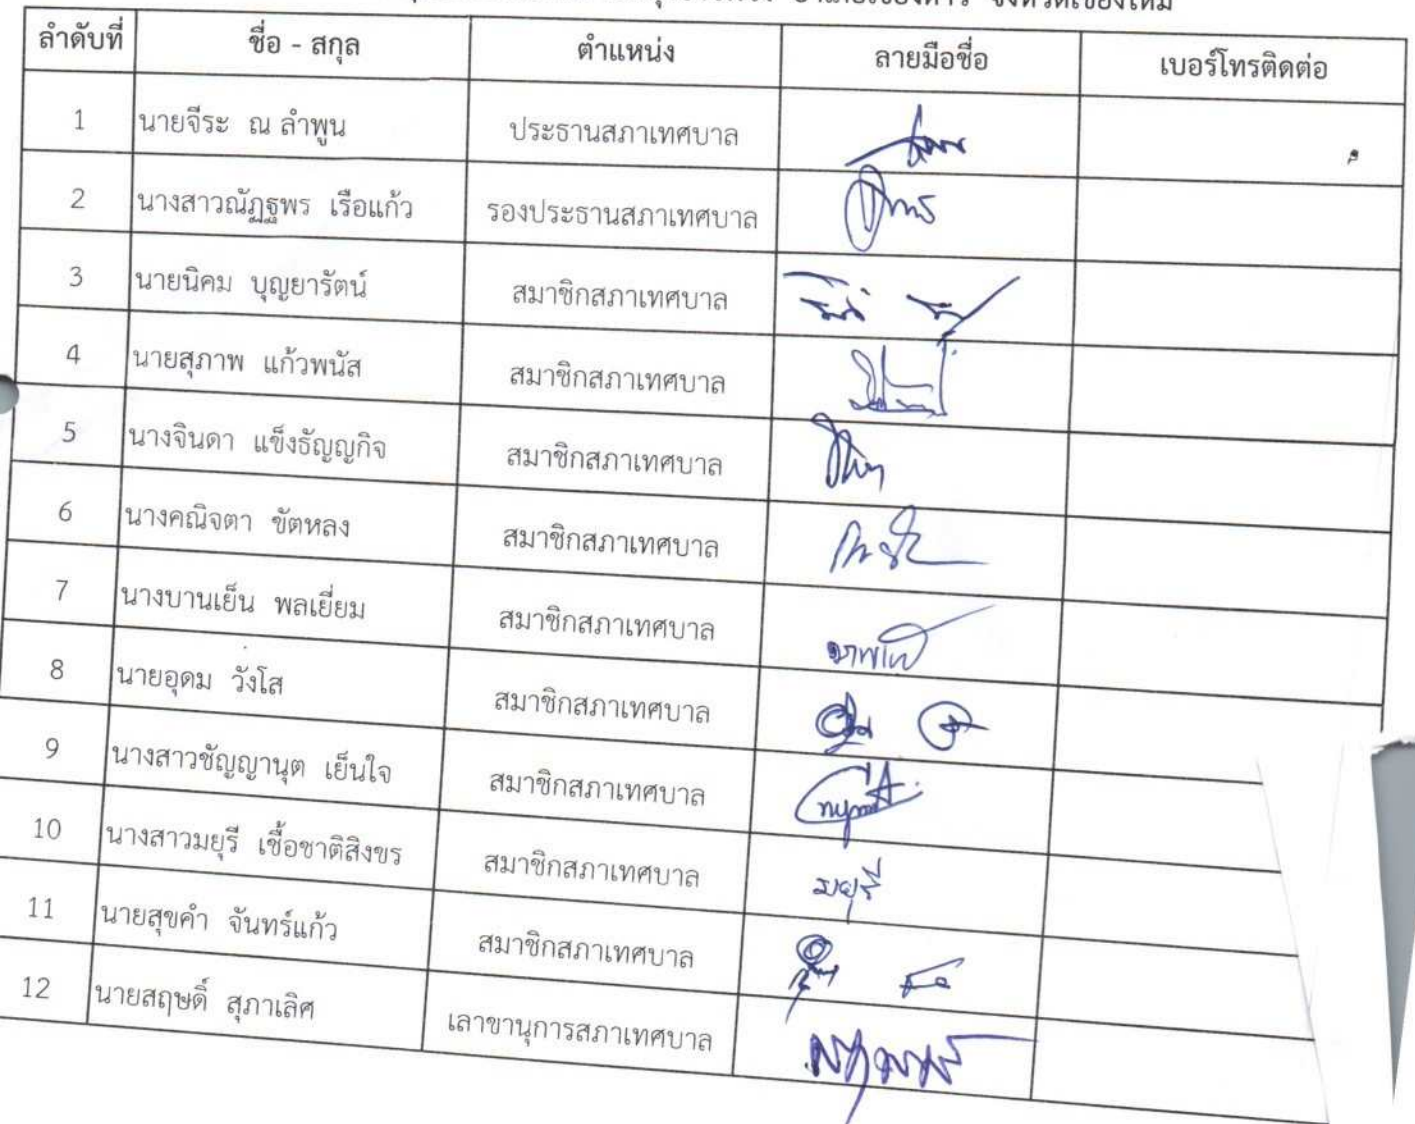 อำเภอเชียงดาว จังหวัดเชียงใหม่
ลำดับที่ ชื่อ - สกุล ตำแหน่ง ลายมือชื่อ เบอร์โทรติดต่อ
1 นายจีระ ณ ลำพูน ประธานสภาเทศบาล
2 นางสาวณัฏฐพร เรือแก้ว รองประธานสภาเทศบาล
3 นายนิคม บุญยารัตน์ สมาชิกสภาเทศบาล
4 นายสุภาพ แก้วพนัส สมาชิกสภาเทศบาล
5 นางจินดา แข็งธัญญกิจ สมาชิกสภาเทศบาล
6 นางคณิจตา ขัตหลง สมาชิกสภาเทศบาล
7 นางบานเย็น พลเยี่ยม สมาชิกสภาเทศบาล
8 นายอุดม วังโส สมาชิกสภาเทศบาล
9 นางสาวชัญญานุต เย็นใจ สมาชิกสภาเทศบาล
10 นางสาวมยุรี เชื้อชาติสิงขร สมาชิกสภาเทศบาล มยุรี
11 นายสุขคำ จันทร์แก้ว สมาชิกสภาเทศบาล
12 นายสฤษดิ์ สุภาเลิศ เลาขานุการสภาเทศบาล